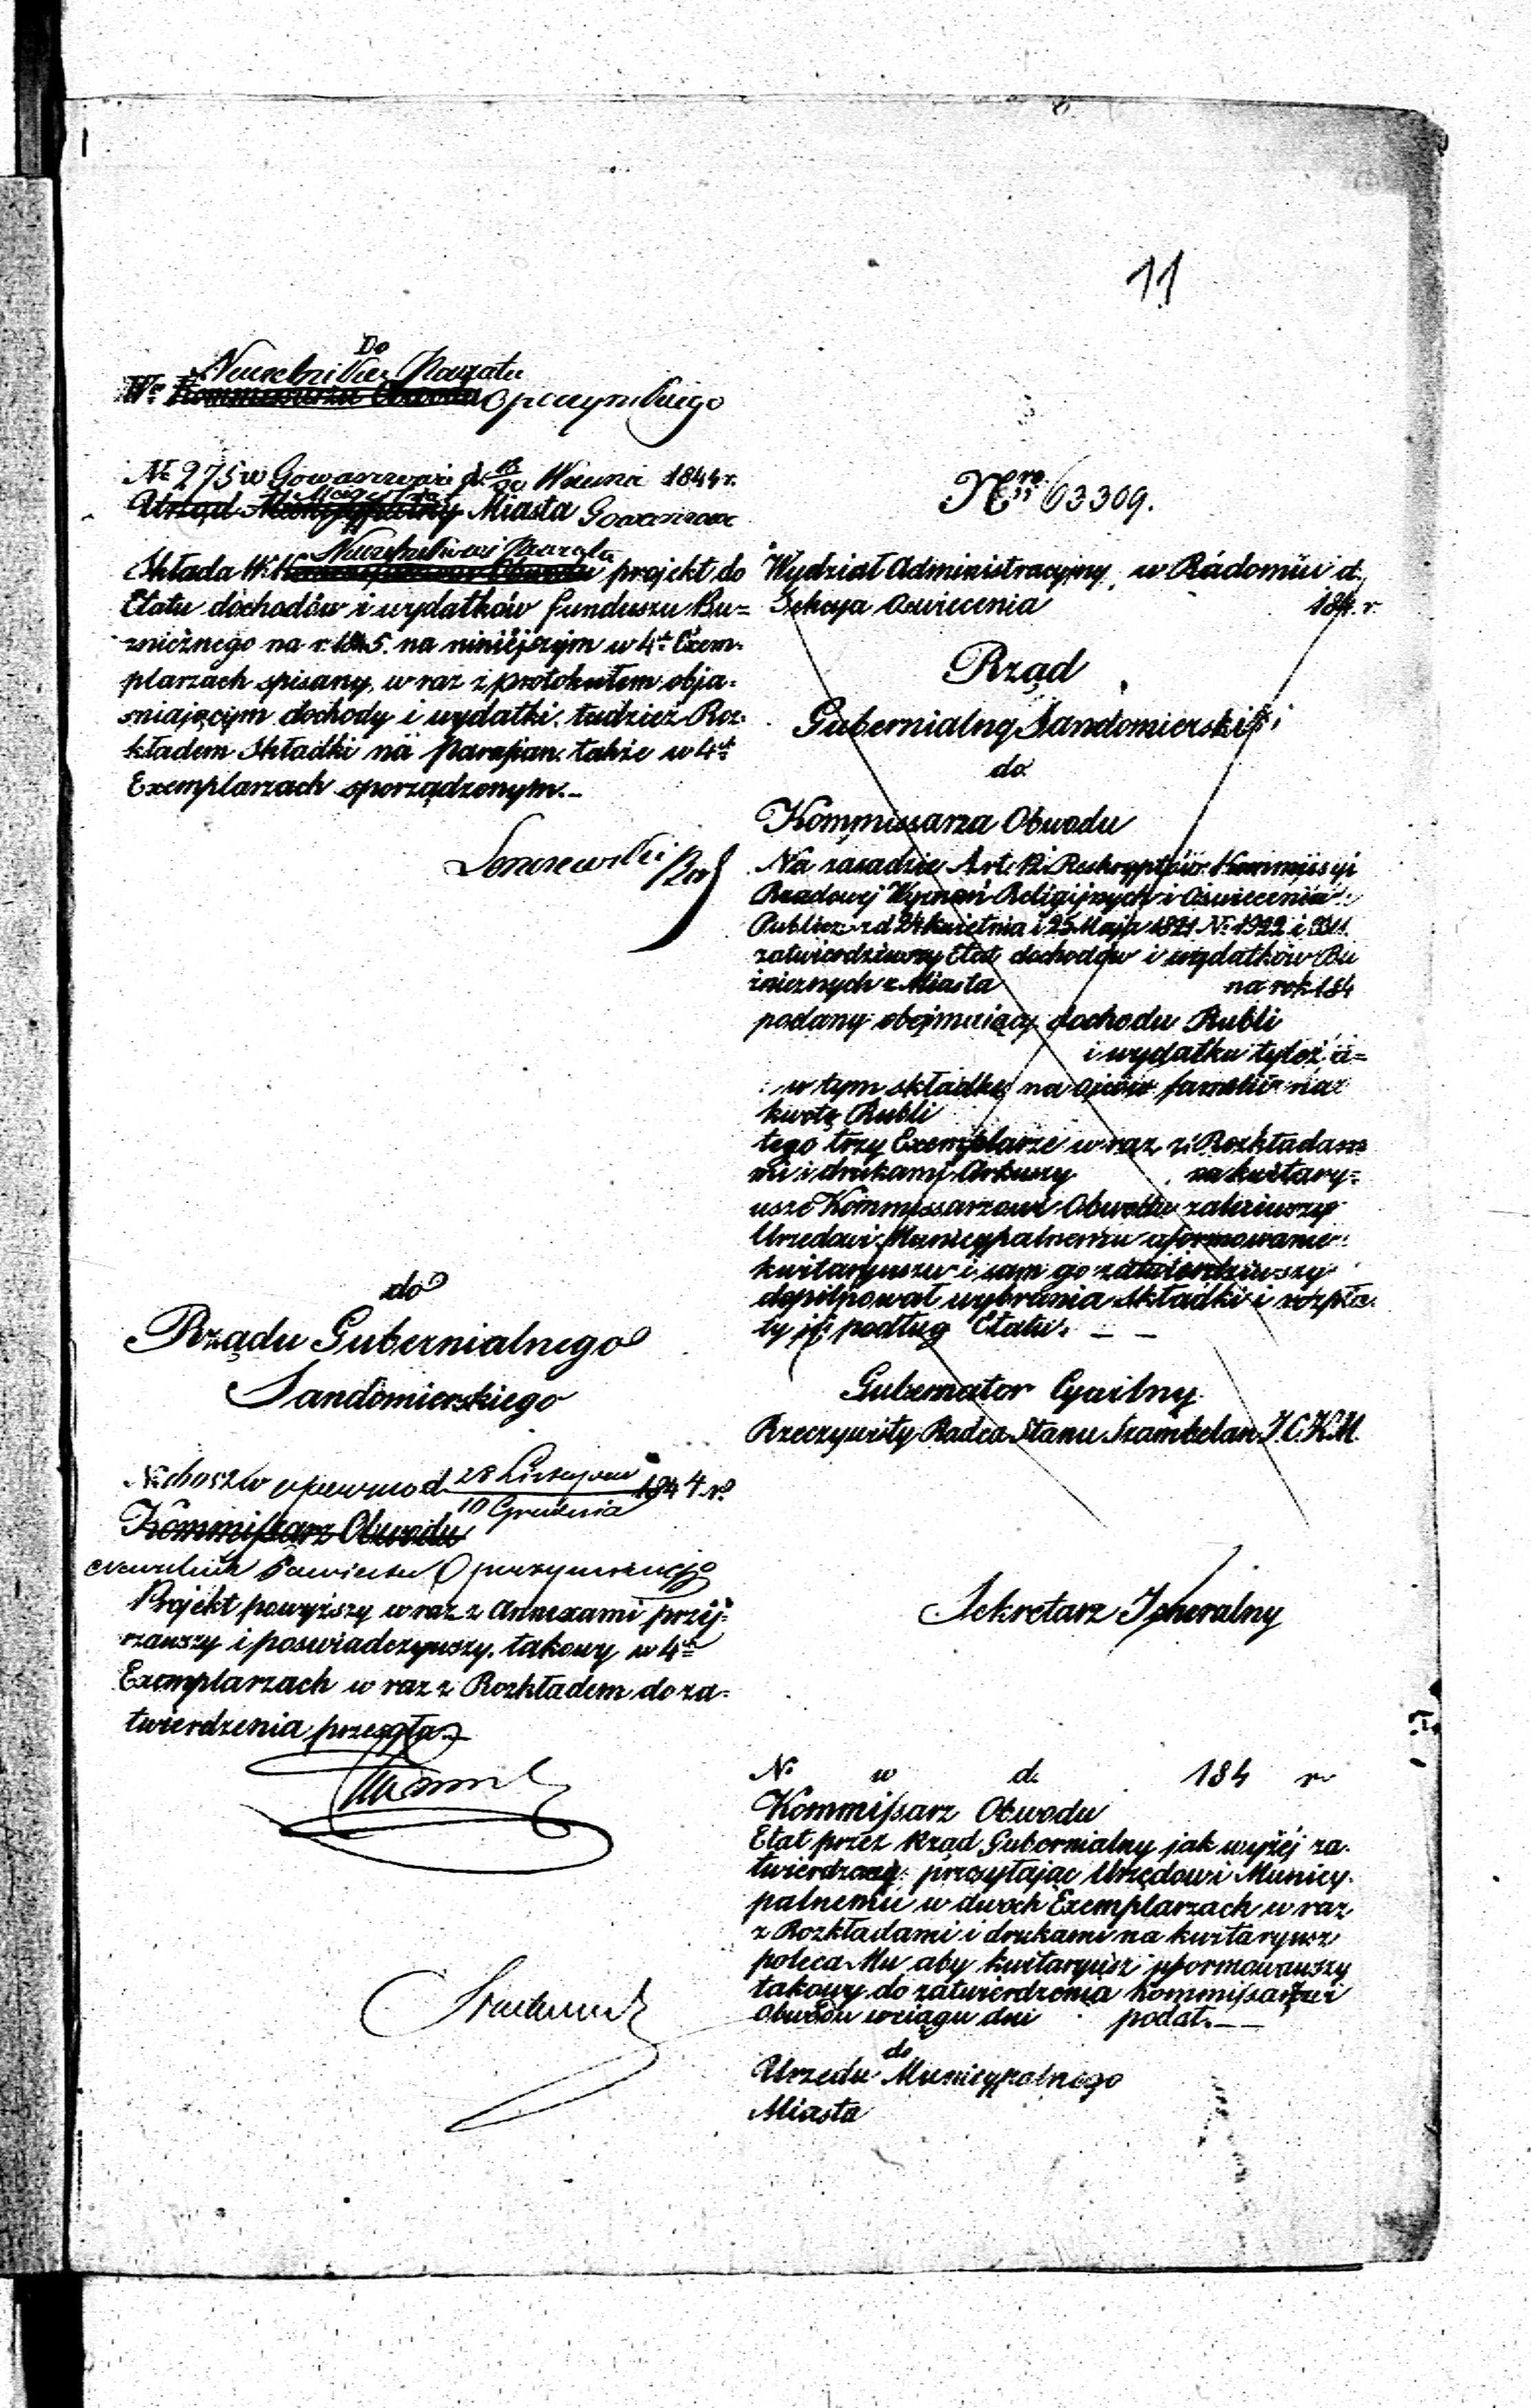 11
Do
Naczelnika Powiatu
W° Kommissarza Obwodu Opoczyńskiego
№ 275 w Gowarczowie d. 18/30 1844 r.
Magistrat
Urząd Municypalny Miasta Gowarczowa
Naczelnikowi Powiatu
Składa W° Kommissarzowi Obwodu projekt do
Etatu dochodów i wydatków funduszu Bu=
znicznego na r. 1845. na niniejszym w 4ch Exem-
plarzach spisany, wraz z protokułem obja-
sniającym dochody i wydatki, tudzież Roz-
kładem Składki na Parafian. także w 4ch
Exemplarzach sporządzonym.–
do
Rządu Gubernialnego
Sandomierskiego
w Opocznie d. 28 Listopada / 10 Grudnia 1844 r.
Kommissarz Obwodu
Naczelnik Powiatu Opoczyńskiego
Projekt powyższy wraz z Annexami przej-
rzawszy i poswiadczywszy, takowy w 4ch
Exemplarzach w raz z Rozkładem do za-
twierdzenia przesyła
Nro 63309.
Wydział Administracyjny w Radomiu d.
Sekcya Oswiecenia 184 r.
Rząd
Gubernialny Sandomierski
do
Kommissarza Obwodu
Na zasadzie Art. 12 i Reskryptów Kommissyi
Rządowej Wyznań Religijnych i Oświecenia
Publicz: z d 24 kwietnia i 25 Maja 1821 № 1922 i
zatwierdziwszy Etat dochodów i wydatków Bu
żnicznych z Miasta na rok 184
podany obejmujący dochodu Rubli
i wydatku tyleż a=
w tym składkę na ojców familii na
kwotę Rubli
tego trzy Exemplarze w raz z Rozkłada
mi i drukami Arkuszy na kwitary=
usze Kommissarzowi Obwodu
Urzędowi Municypalnemu uformowanie
kwitaryuszu i sam go zatwierdziwszy
dopilnował wybrania składki i rozpła-
ty jéj podług Etatu. — —
Gubernator Cywilny
Rzeczywisty Radca Stanu Szambelan J.C.K.M.
Sekretarz Jeneralny
№ w d. 184 r
Kommissarz Obwodu
Etat przez Rząd Gubernialny jak wyżej za-
twierdzony przesyłając Urzędowi Municy-
palnemu w dwóch Exemplarzach w raz
z Rozkładami i drukami na kwitaryusz
poleca Mu aby kwitaryusz uformowawszy
takowy do zatwierdzenia Kommissarzowi
Obwodu wciągu dni podał. — —
do
Urzędu Municypalnego
Miasta